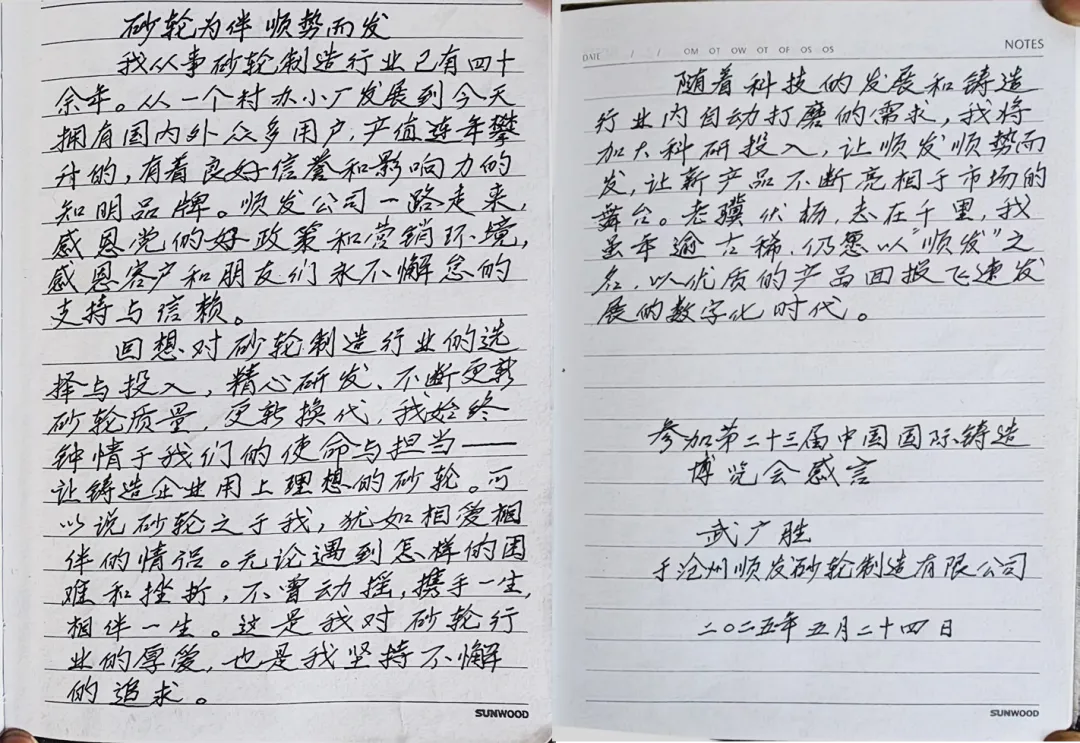 砂轮为伴 顺势而发
我从事砂轮制造行业已有四十
余年。从一个村办小厂发展到今天
拥有国内外众多用户，产值连年攀
升的，有着良好信誉和影响力的
知明品牌。顺发公司一路走来，
感恩党的好政策和营销环境，
感恩客户和朋友们永不懈怠的
支持与信赖。
回想对砂轮制造行业的选
择与投入，精心研发、不断更新
砂轮质量，更新换代，我始终
钟情于我们的使命与担当——
让铸造企业用上理想的砂轮。可
以说砂轮之于我，犹如相爱相
伴的情侣。无论遇到怎样的困
难和挫折，不曾动摇，携手一生，
相伴一生。这是我对砂轮行
业的厚爱，也是我坚持不懈
的追求。
SUNWOOD
DATE / / OM OT OW OT OF OS OS NOTES
随着科技的发展和铸造
行业内自动打磨的需求，我将
加大科研投入，让顺发顺势而
发，让新产品不断亮相于市场的
舞台。老骥伏枥，志在千里，我
虽年逾古稀，仍愿以“顺发”之
名，以优质的产品回报飞速发
展的数字化时代。
参加第二十三届中国国际铸造
博览会感言
武广胜
于沧州顺发砂轮制造有限公司
二〇二五年五月二十四日
SUNWOOD